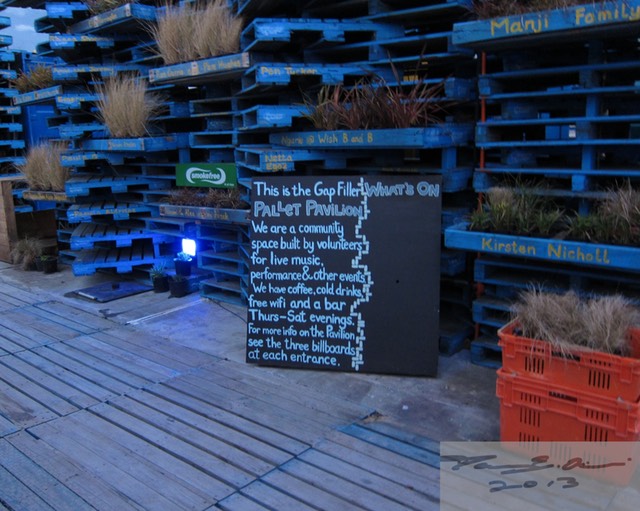 Manji Family
Pam Hughes
Pen Tucker
Ngaire @ Wish B and B
Netta
smokefree
This is the Gap Filler
Pallet Pavilion
We are a community
space built by volunteers
for live music,
performance & other events
We have coffee, cold drinks,
free wifi and a bar
Thurs-Sat evenings.
For more info on the Pavilion,
see the three billboards
at each entrance.
What's On
Kirsten Nicholl
2013